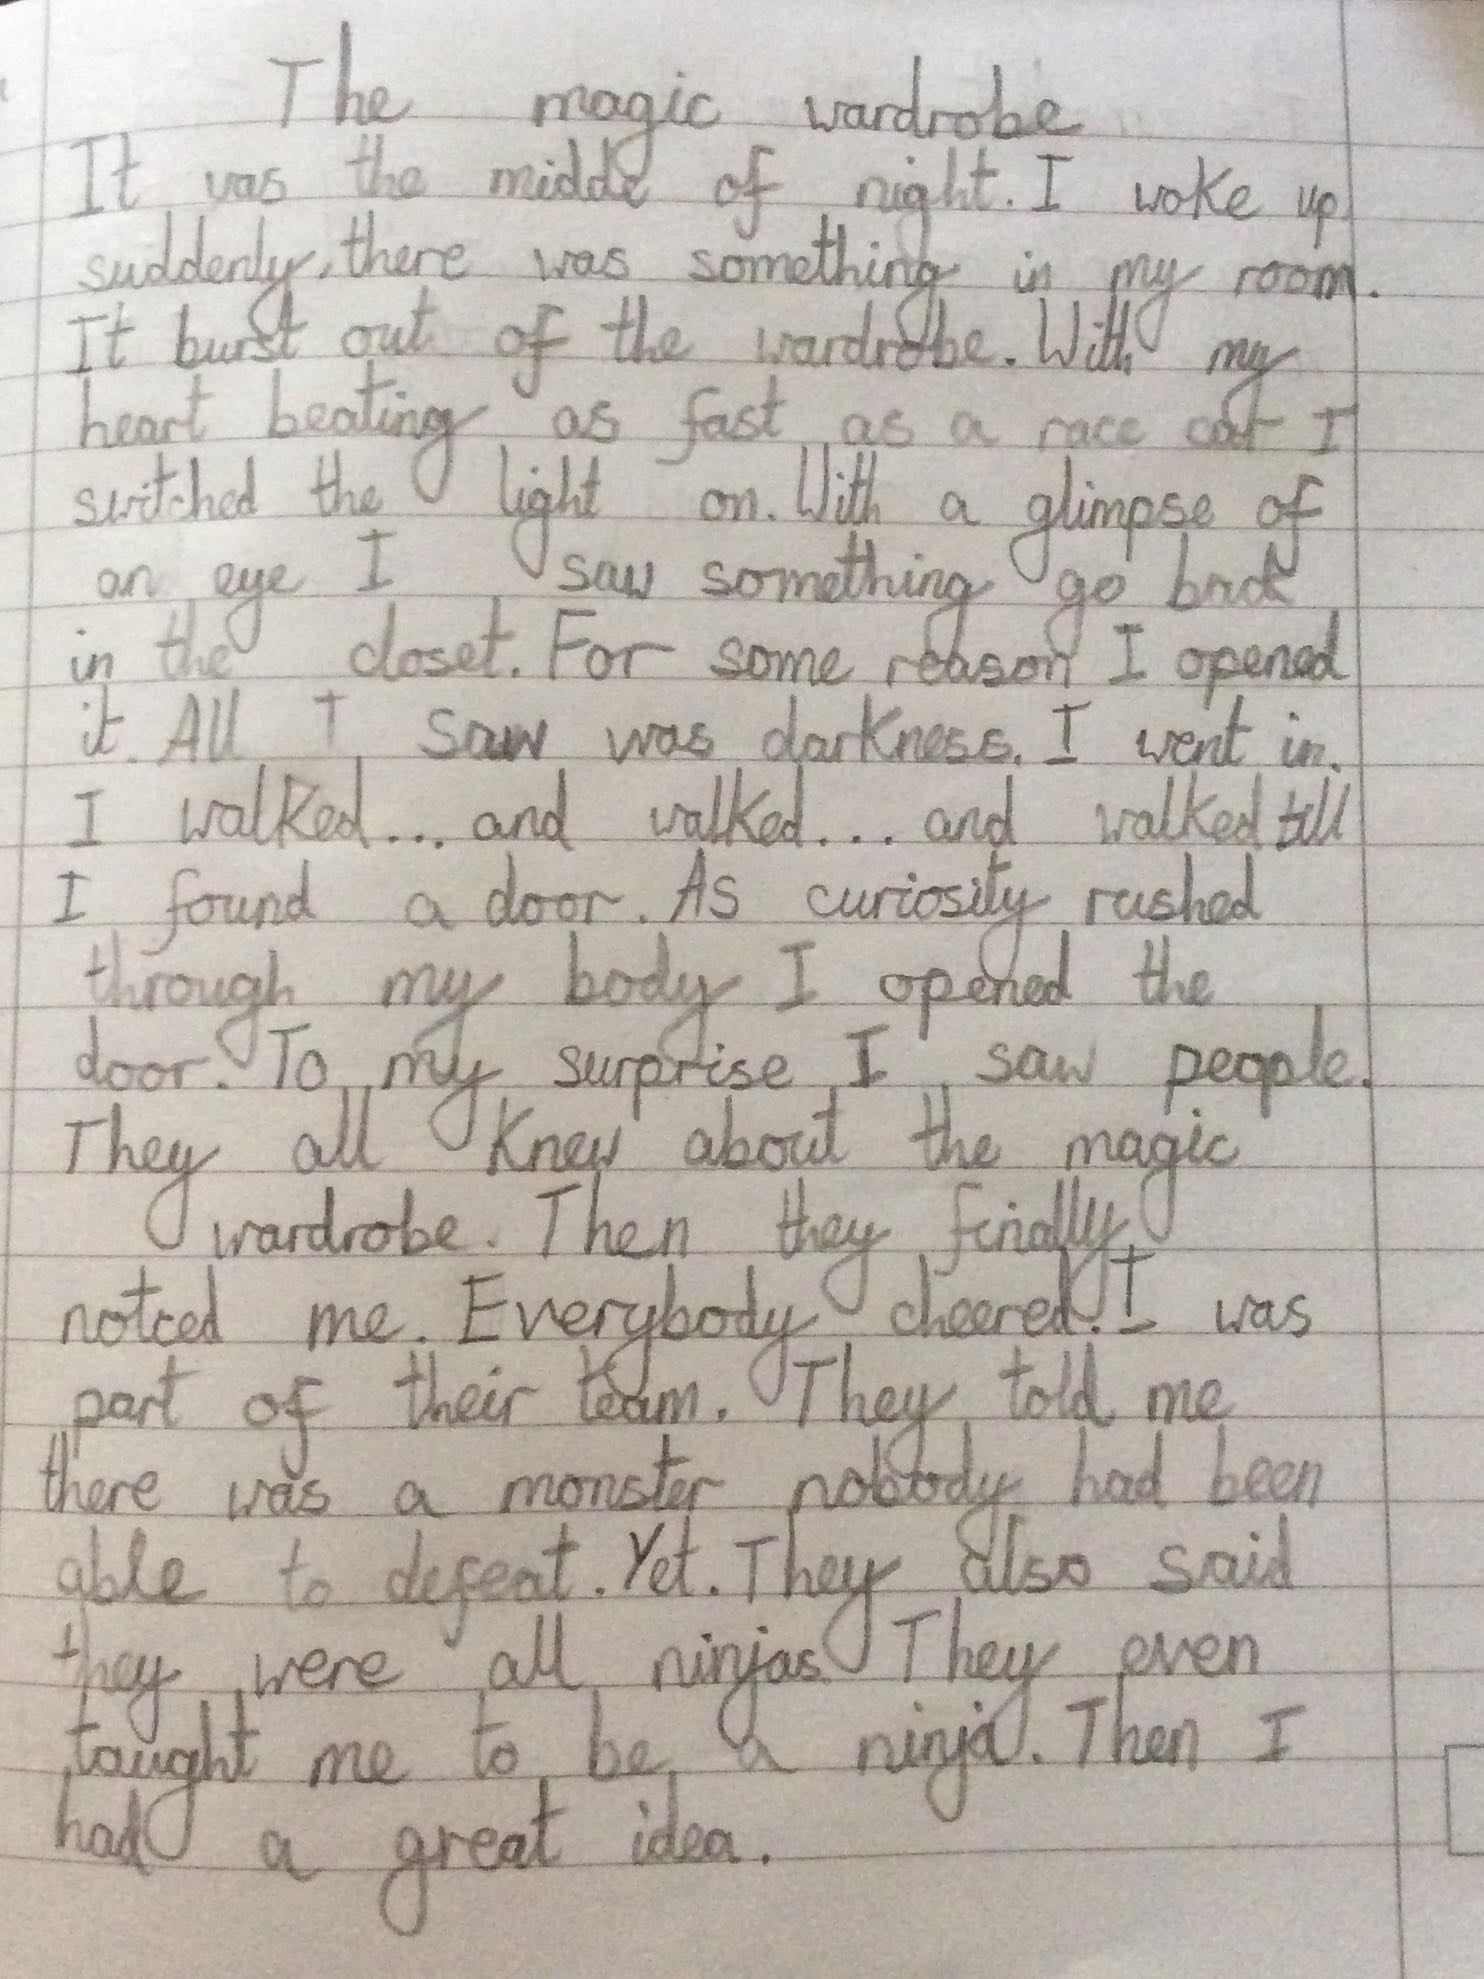 The magic wardrobe
It was the middle of night. I woke up
suddenly, there was something in my room.
It burst out of the wardrobe. With my
heart beating as fast as a race car I
switched the light on. With a glimpse of
an eye I saw something go back
in the closet. For some reason I opened
it. All I saw was darkness. I went in.
I walked... and walked... and walked till
I found a door. As curiosity rushed
through my body I opened the
door. To my surprise I saw people.
They all knew about the magic
wardrobe. Then they finally
notced me. Everybody cheered. I was
part of their team. They told me
there was a monster nobody had been
able to defeat. Yet. They also said
they were all ninjas. They even
taught me to be a ninja. Then I
had a great idea.